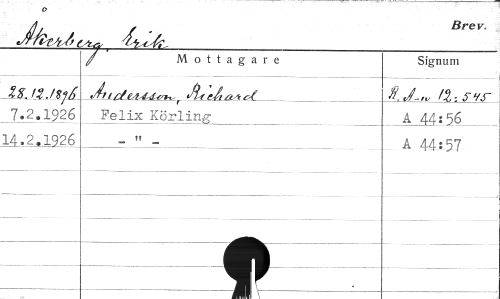 Brev.
Åkerberg, Erik
Mottagare Signum
28.12.1896 Andersson, Richard R. A-n 12:545
7.2.1926 Felix Körling A 44:56
14.2.1926 - " - A 44:57